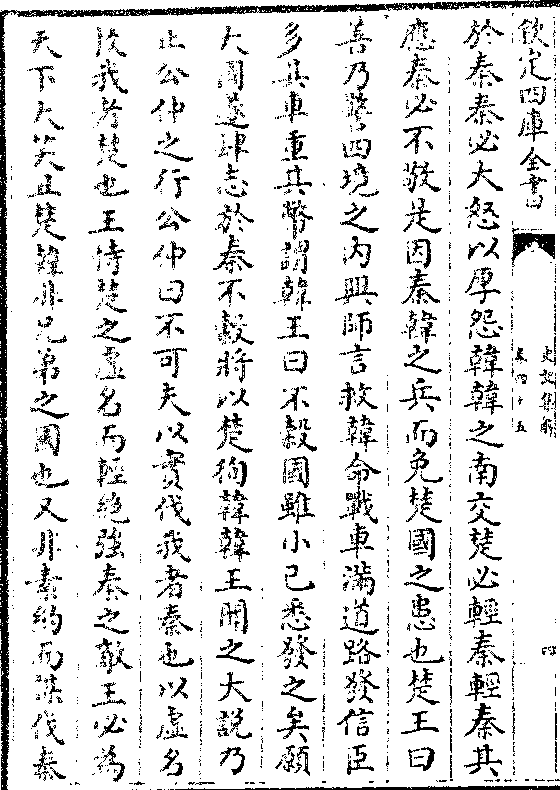 欽定四庫全書
史記集解
卷四十五
四
於秦秦必大怒以厚怨韓韓之南交楚必輕秦輕秦其
應秦必不敬是因秦韓之兵而免楚國之患也楚王曰
善乃警四境之内興師言救韓命戰車滿道路發信臣
多其車重其幣謂韓王曰不穀國雖小已悉發之矣願
大國遂肆志於秦不穀將以楚徇韓韓王聞之大說乃
止公仲之行公仲曰不可夫以實伐我者秦也以虛名
救我者楚也王恃楚之虛名而輕絶強秦之敵王必為
天下大笑且楚韓非兄弟之國也又非素約而謀伐秦